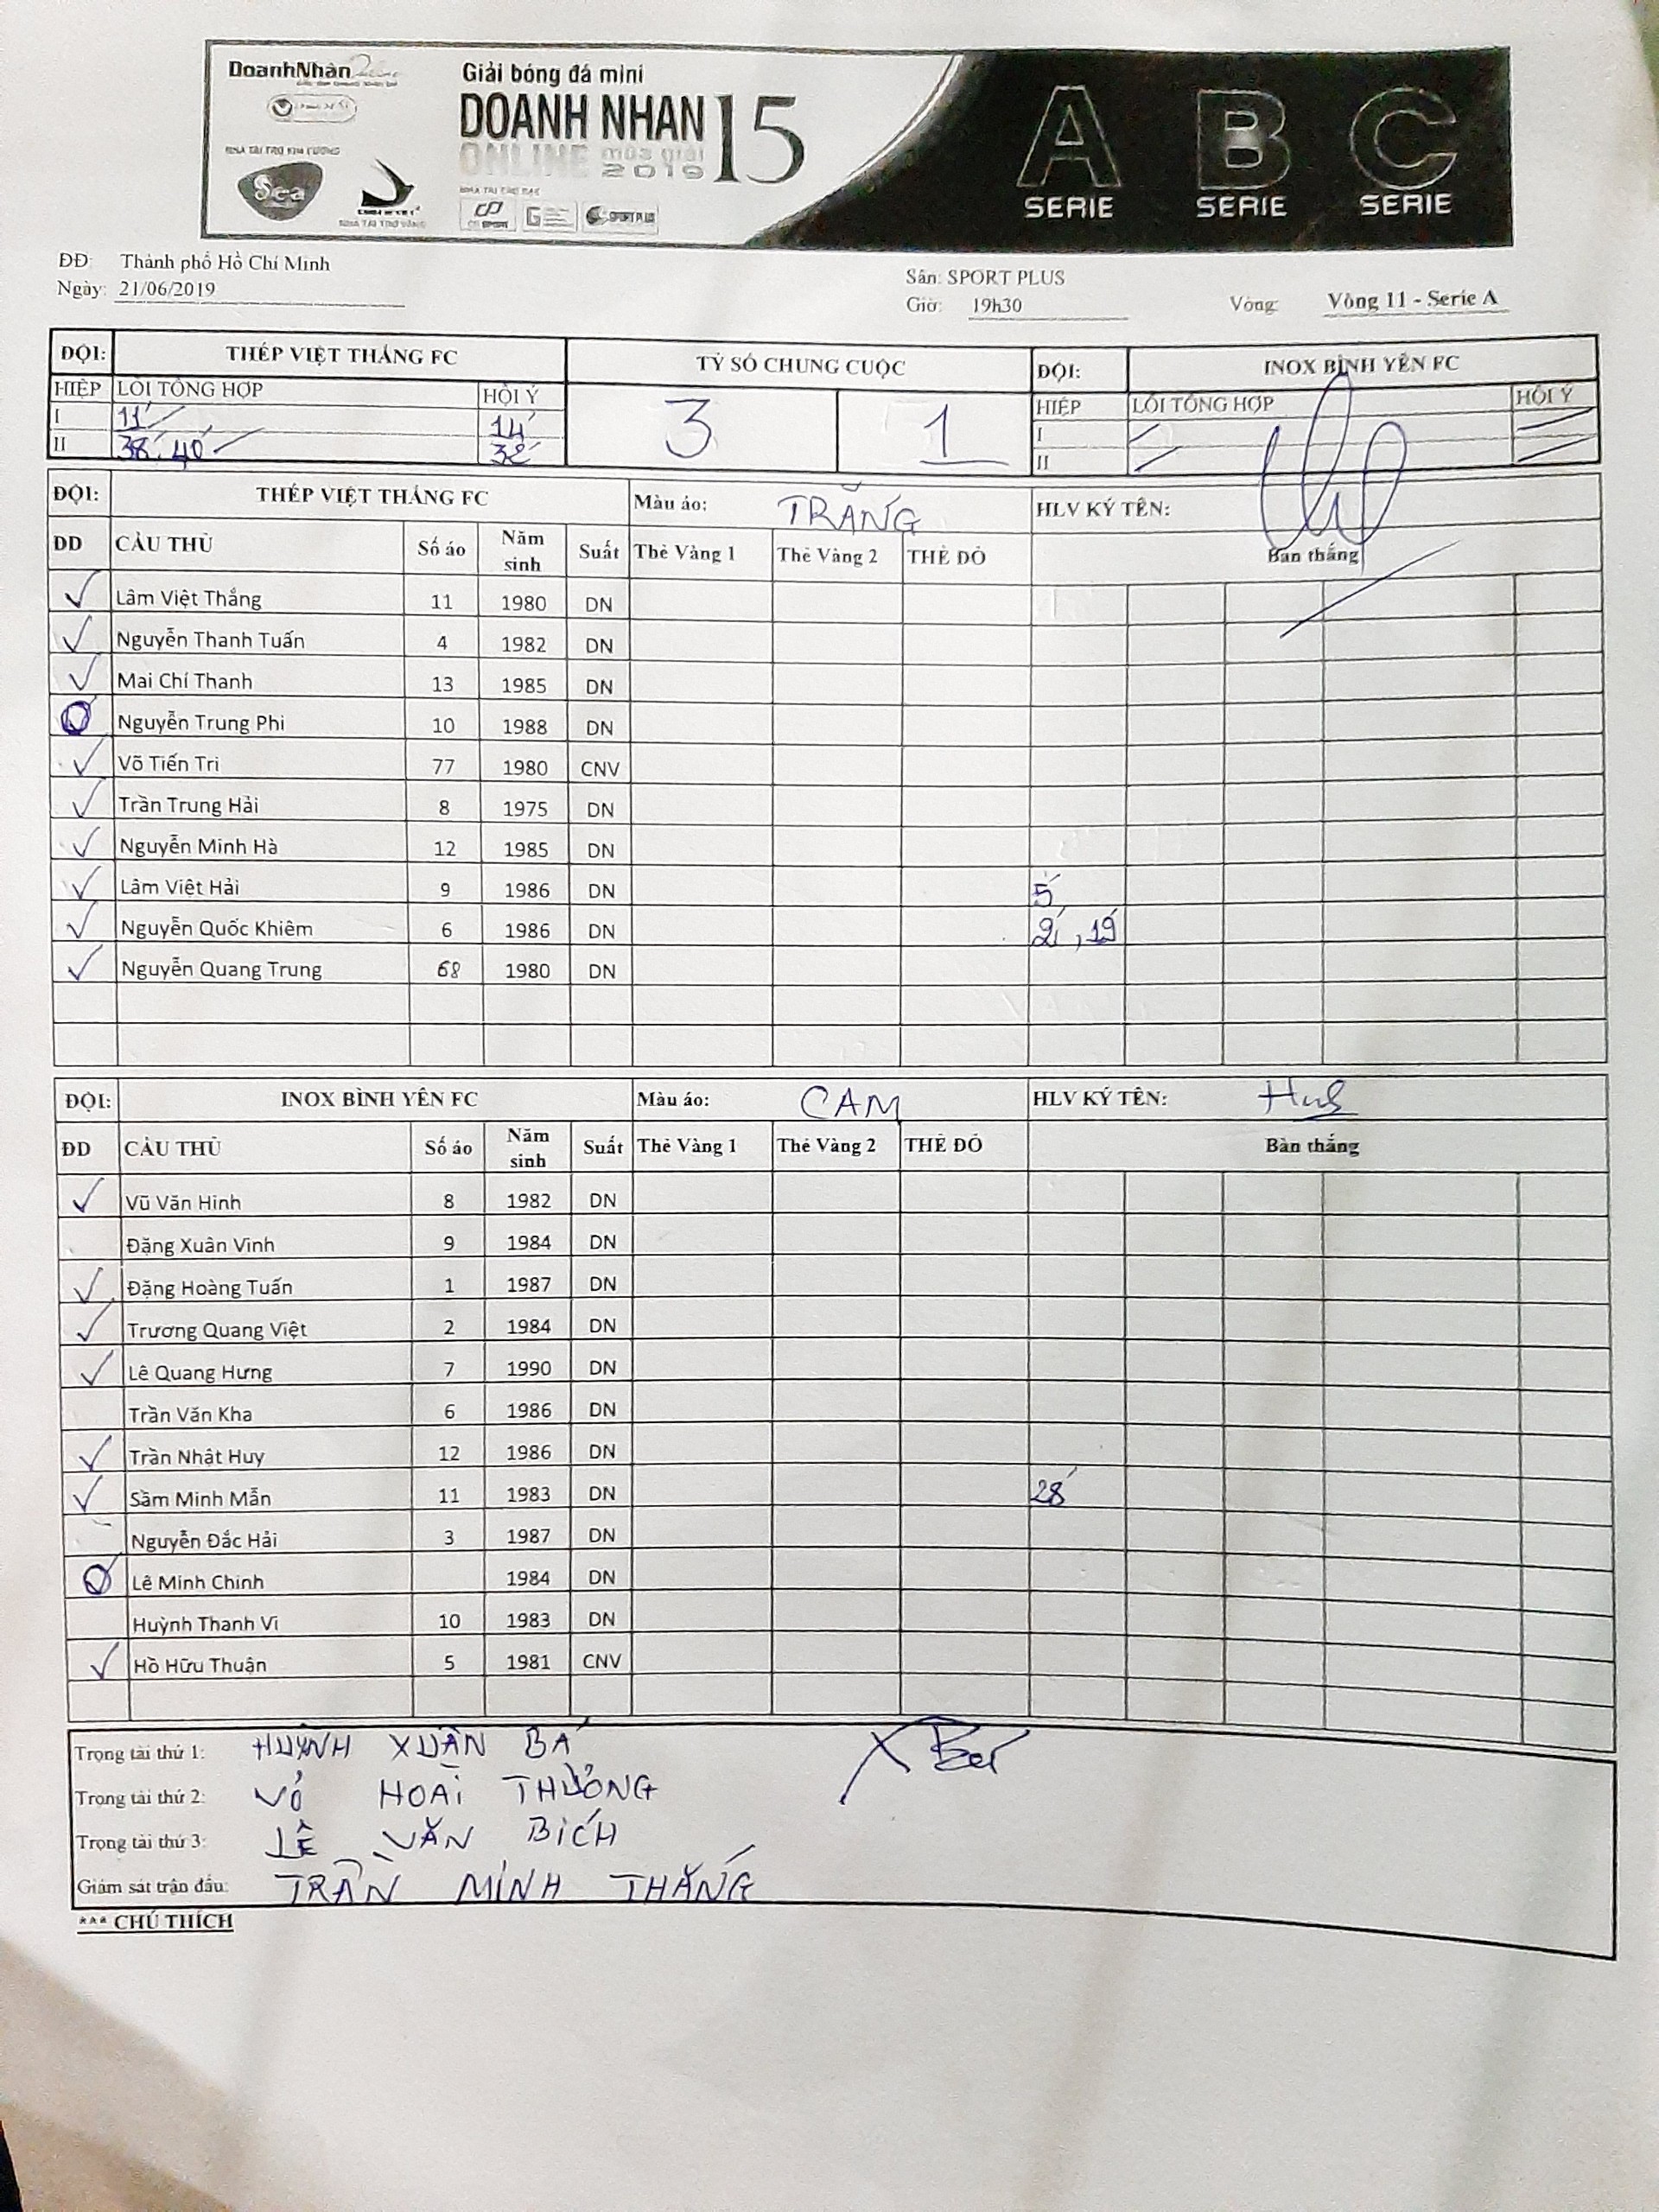 DoanhNhân Online
Giải bóng đá mini
DOANH NHAN 15
ONLINE mùa giải 2019
NHÀ TÀI TRỢ KIM CƯƠNG
Sea
NHÀ TÀI TRỢ VÀNG
NHÀ TÀI TRỢ BẠC
SPORT PLUS
A SERIE B SERIE C SERIE
ĐĐ: Thành phố Hồ Chí Minh Sân: SPORT PLUS
Ngày: 21/06/2019 Giờ: 19h30 Vòng: Vòng 11 - Serie A
ĐỘI: THÉP VIỆT THẮNG FC TỶ SỐ CHUNG CUỘC ĐỘI: INOX BÌNH YÊN FC
HIỆP LỖI TỔNG HỢP HỘI Ý 3 1 HIỆP LỖI TỔNG HỢP HỘI Ý
I 11' 14' I
II 38', 40' 32' II
ĐỘI: THÉP VIỆT THẮNG FC Màu áo: TRẮNG HLV KÝ TÊN:
DD CẦU THỦ Số áo Năm sinh Suất Thẻ Vàng 1 Thẻ Vàng 2 THẺ ĐỎ Bàn thắng
✓ Lâm Việt Thắng 11 1980 DN
✓ Nguyễn Thanh Tuấn 4 1982 DN
✓ Mai Chí Thanh 13 1985 DN
✓ Nguyễn Trung Phi 10 1988 DN
✓ Võ Tiến Tri 77 1980 CNV
✓ Trần Trung Hải 8 1975 DN
✓ Nguyễn Minh Hà 12 1985 DN
✓ Lâm Việt Hải 9 1986 DN 5'
✓ Nguyễn Quốc Khiêm 6 1986 DN 2', 19'
✓ Nguyễn Quang Trung 68 1980 DN
ĐỘI: INOX BÌNH YÊN FC Màu áo: CAM HLV KÝ TÊN:
ĐD CẦU THỦ Số áo Năm sinh Suất Thẻ Vàng 1 Thẻ Vàng 2 THẺ ĐỎ Bàn thắng
✓ Vũ Văn Hinh 8 1982 DN
Đặng Xuân Vinh 9 1984 DN
✓ Đặng Hoàng Tuấn 1 1987 DN
✓ Trương Quang Việt 2 1984 DN
✓ Lê Quang Hưng 7 1990 DN
Trần Văn Kha 6 1986 DN
✓ Trần Nhật Huy 12 1986 DN
✓ Sầm Minh Mẫn 11 1983 DN 28'
Nguyễn Đắc Hải 3 1987 DN
✓ Lê Minh Chinh 1984 DN
Huỳnh Thanh Vi 10 1983 DN
✓ Hồ Hữu Thuận 5 1981 CNV
Trọng tài thứ 1: HUỲNH XUÂN BÁ
Trọng tài thứ 2: VÕ HOÀI THƯƠNG
Trọng tài thứ 3: LÊ VĂN BÍCH
Giám sát trận đấu: TRẦN MINH THẮNG
*** CHÚ THÍCH